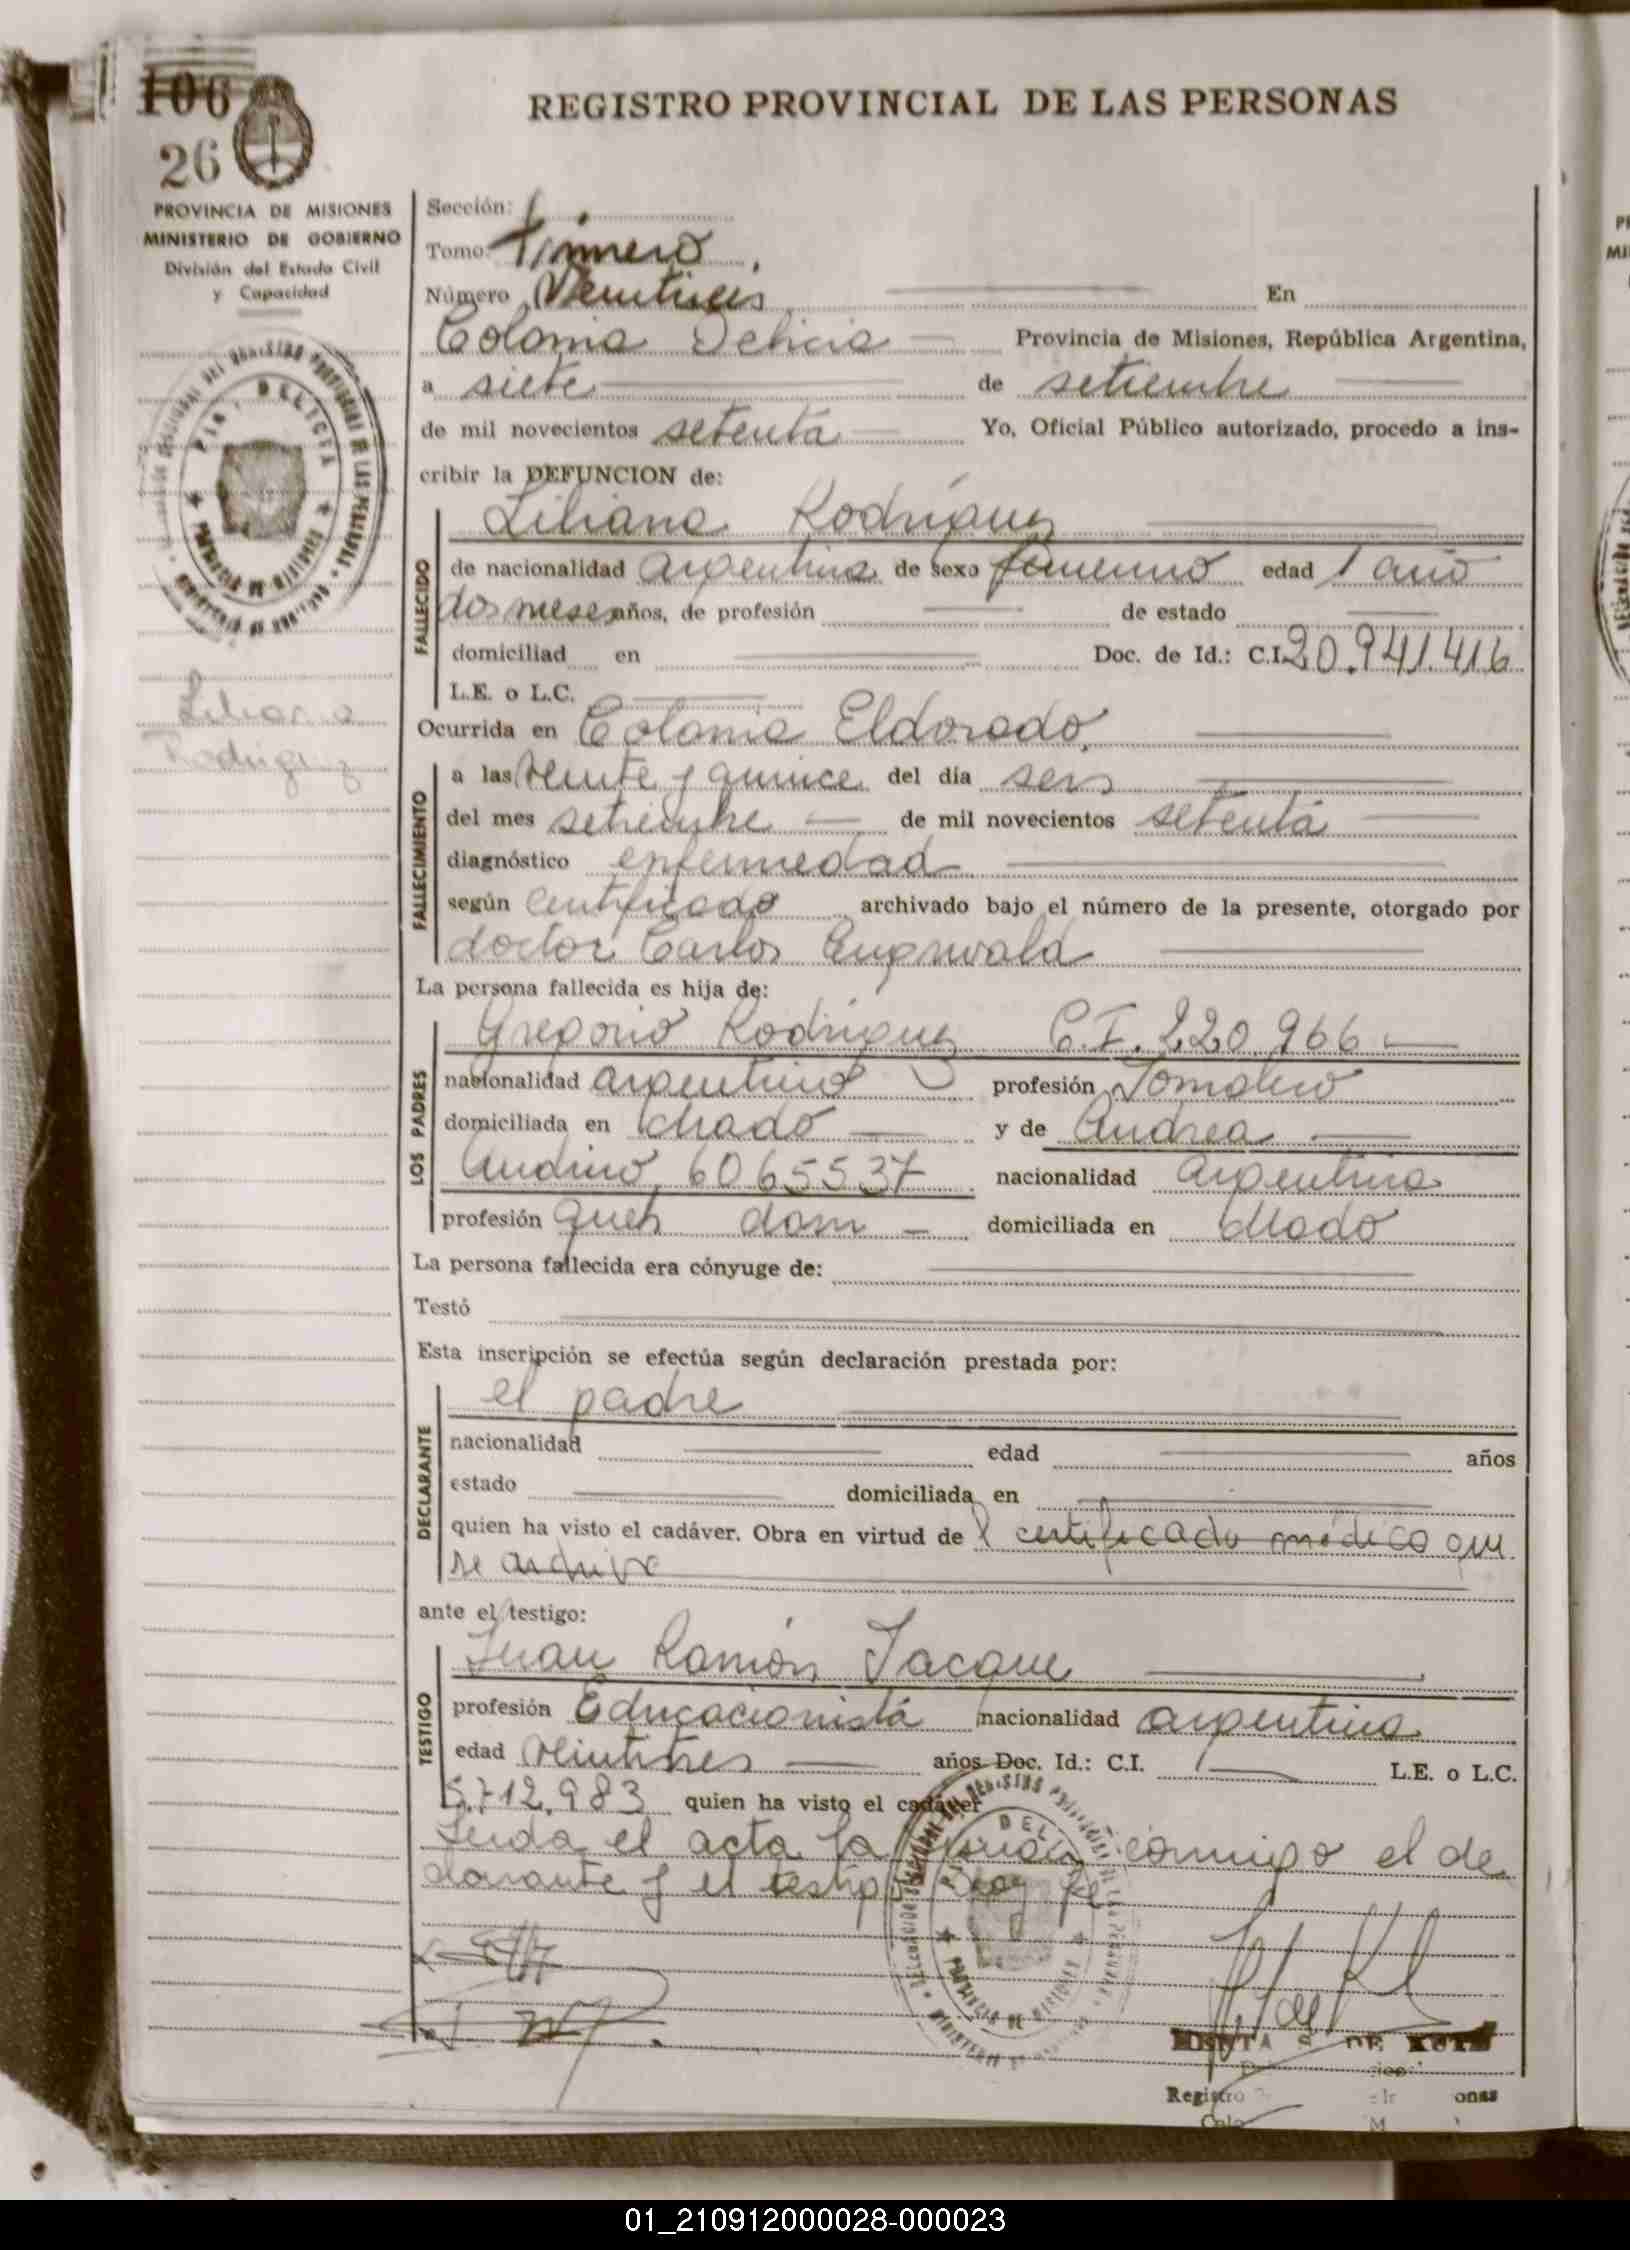 106
26
REGISTRO PROVINCIAL DE LAS PERSONAS
PROVINCIA DE MISIONES
MINISTERIO DE GOBIERNO
División del Estado Civil
y Capacidad
Liliana
Rodriguez
Sección:
Tomo: Primero
Número En
Colonia Delicia Provincia de Misiones, República Argentina,
a siete de setiembre
de mil novecientos setenta Yo, Oficial Público autorizado, procedo a ins-
cribir la DEFUNCION de:
FALLECIDO
Liliana Rodríguez
de nacionalidad argentina de sexo femenino edad 1 año
dos meses años, de profesión de estado
domiciliad en Doc. de Id.: C.I. 20.941.416
L.E. o L.C.
Ocurrida en Colonia Eldorado,
FALLECIMIENTO
a las veinte y quince del día seis
del mes setiembre de mil novecientos setenta
diagnóstico enfermedad
según certificado archivado bajo el número de la presente, otorgado por
doctor Carlos
La persona fallecida es hija de:
LOS PADRES
Gregorio Rodriguez C.I. 220.966
nacionalidad argentino profesión
domiciliada en y de Andrea
Andino 6065537 nacionalidad argentina
profesión domiciliada en
La persona fallecida era cónyuge de:
Testó
Esta inscripción se efectúa según declaración prestada por:
DECLARANTE
el padre
nacionalidad edad años
estado domiciliada en
quien ha visto el cadáver. Obra en virtud de l certificado médico que
se archiva
ante el testigo:
TESTIGO
Juan Ramón Jacque
profesión Educacionista nacionalidad argentina
edad veintitres años Doc. Id.: C.I. L.E. o L.C.
5.712.983 quien ha visto el cadáver
Leida el acta la conmigo el de
clarante y el testigo Doy fe
Registro onas
01_210912000028-000023